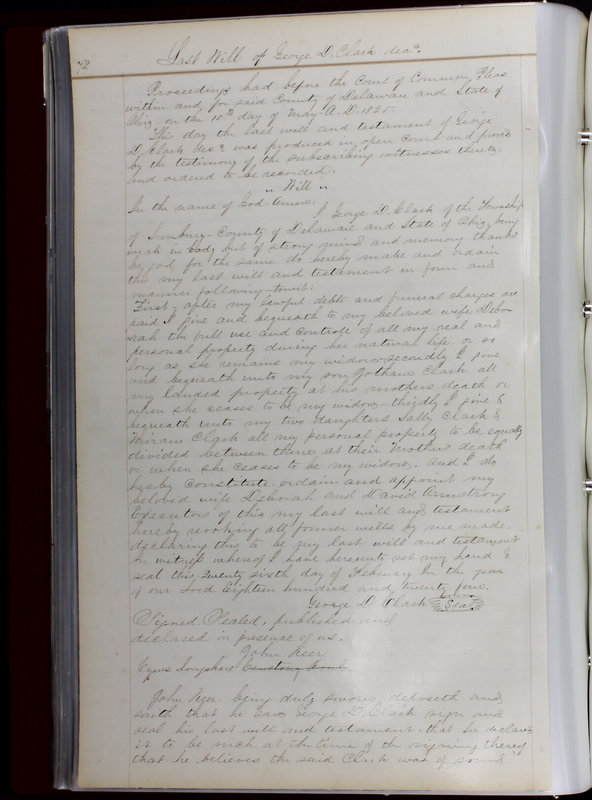 72
Last Will of George D. Clark decd.
Proceedings had before the Court of Common Pleas
within and for said County of Delaware and State of
Ohio. on the 10th day of May A.D. 1825.
This day the last will and testament of George
D. Clark decd. was produced in open Court and proved
by the testimony of the subscribing witnesses thereto.
and ordered to be recorded.
" Will "
In the name of God-Amen.
I George D. Clark of the Township
of Sunbury- County of Delaware and State of Ohio, being
weak in body but of strong mind and memory, thanks
be god for the same do hereby make and ordain
this my last will and testament in form and
manner following-towit:
First, after my lawful debts and funeral charges are
paid I give and bequeath to my beloved wife Debor-
rah the full use and controle of all my real and
personal property dureing her natural life or so
long as she remains my widow-secondly I give
and bequeath unto my son Clark all
my landed property at his mothers death or
when she ceases to be my widow,- thirdly I give &
bequeath unto my two daughters Sally Clark &
Clark all my personal property to be equally
divided between them at their Mothers death
or when she ceases to be my widow. And I do
hereby constitute. ordain and appoint my
beloved wife Deborah and David Armstrong
Executors of this my last will and testament
hereby revoking all former wills by me made.
declaring this to be my last will and testament
In witness whereof I have hereunto set my hand &
seal this, twenty sixth day of February In the year
of our Lord Eighteen hundred and twenty four.
George D. Clark Seal
Signed Sealed. published and
declared in presence of us.
John Keer
Cyrus Longshore
John Keer being duly sworn deposeth and
saith that he saw George D. Clark sign and
seal his last will and testament- that he declared
it to be such at the time of the signing thereof
that he believes the said Clark was of sound